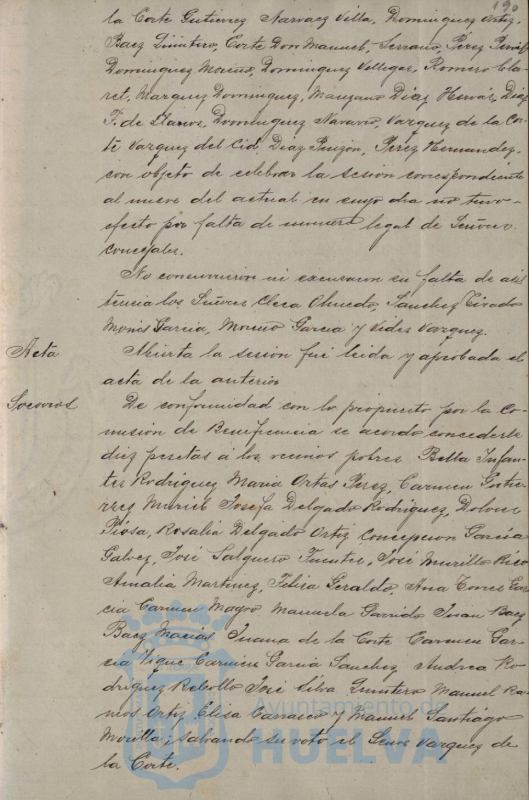 190
la Corte Gutierrez Narvaez Villa, Dominguez Ortiz,
Baez Quintero, Corte Don Manuel, Serrano, Perez
Dominguez Moreno, Dominguez Villegas, Romero Cla-
ret, Marquez Dominguez, Manzano Diaz Hervás, Diaz
F. de Llanos, Dominguez Navarro, Vazquez de la Cor-
te Vazquez del Cid, Diaz Pinzón, Perez Hernandez,
con objeto de celebrar la sesión correspondiente
al nueve del actual en cuyo dia no tuvo
efecto por falta de numero legal de Señores
concejales.
No concurrieron ni excusaron su falta de asis
tencia los Señores Checa Olmedo, Sanchez Tirado
Monis Garcia, Moreno Garcia y Vides Vazquez.
Acta
Abierta la sesion fué leida y aprobada el
acta de la anterior
Socorros
De conformidad con lo propuesto por la Co-
misión de Beneficencia se acordo concederle
diez pesetas á los vecinos pobres Bella Infan-
tes Rodriguez Maria Ortas Perez, Carmen Gutie-
rrez Josefa Delgado Rodriguez, Dolores
Piosa, Rosalia Delgado Ortiz Concepcion Garcia
Galvez, José Salguero Fuentes, José Murillo Rico
Amalia Martinez, Felisa Geraldo, Ana Torres Gar-
cia Carmen Mayo Manuela Garrido Juan Baez
Baez Macias Juana de la Corte Carmen Gar-
cia Vique Carmen Garcia Sanchez Andrea Ro
driguez Rebollo José Silva Quintero Manuel Ra
mos Ortiz Elisa Carrasco y Manuel Santiago
Morilla; salvando su voto el Señor Vazquez de
la Corte.
Ayuntamiento de
HUELVA